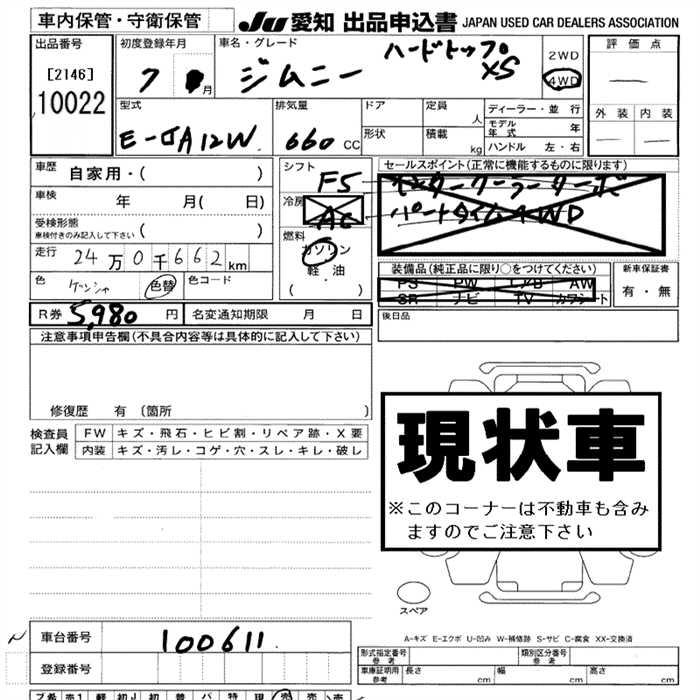 車内保管・守衛保管 JU 愛知 出品申込書 JAPAN USED CAR DEALERS ASSOCIATION
出品番号 初度登録年月 車名・グレード ハードトップ 2WD 評価点
[2146] 7 月 ジムニー XS 4WD
10022 外装 内装
型式 排気量 ドア 定員 人 ディーラー・並行
E-JA12W 660 CC 形状 積載 kg モデル年式 年
ハンドル 左・右
車歴 自家用・( ) シフト F5 セールスポイント(正常に機能するものに限ります)
車検 年 月( 日) 冷房 AC インタークーラーターボ
受検形態 ( ) パートタイム4WD
車検付きのみ記入して下さい
走行 24万0千662km 燃料 ガソリン
色 ケンシャ 色替 色コード 軽・油 装備品(純正品に限り○をつけてください) 新車保証書
(・) PS PW AW 有・無
SR ナビ TV カワシート
R券 5,980 円 名変通知期限 月 日 後日品
注意事項申告欄(不具合内容等は具体的に記入して下さい)
修復歴 有 〔箇所 〕
検査員 FW キズ・飛石・ヒビ割・リペア跡・X要
記入欄 内装 キズ・汚レ・コゲ・穴・スレ・キレ・破レ
現状車
※このコーナーは不動車も含み
ますのでご注意下さい
スペア
A-キズ E-エクボ U-凹み W-補修跡 S-サビ C-腐食 XX-交換済
車台番号 100611
登録番号
形式指定番号 参考 類別区分番号 参考
車庫証明用 参考 長さ cm 幅 cm 高さ cm